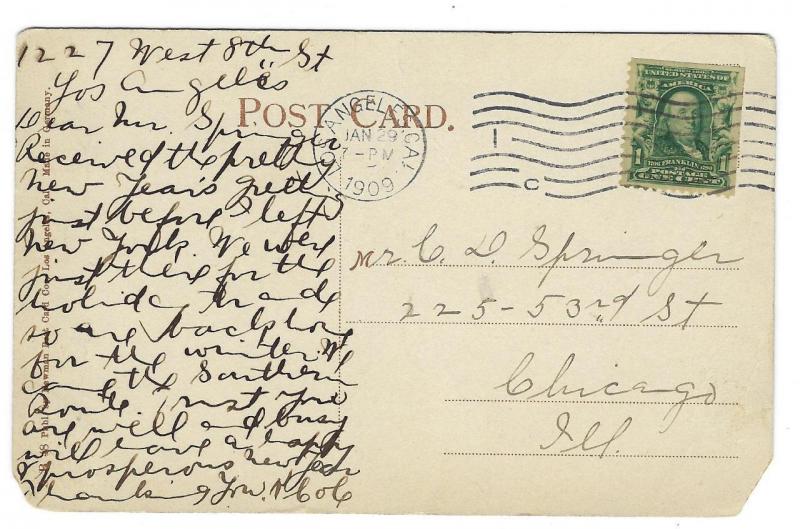 1227 West 8th St
Los Angeles
Dear Mr. Springer
Received the pretty
New Years greet
just before I left
New York. We were
just there for the
holiday trade
so are back home
for the winter. We
came the Southern
Route. Trust you
are well and busy
will have a happy
& prosperous New Year
Thanking You.
POST CARD.
LOS ANGELES, CAL.
JAN 29
7-PM
1909
1
C
UNITED STATES OF
AMERICA
FRANKLIN
1 POSTAGE 1
ONE CENT
Mr C. D. Springer
225-53rd St
Chicago
Ill.
Newman Post Card Co., Los Angeles, Cal. Made in Germany.